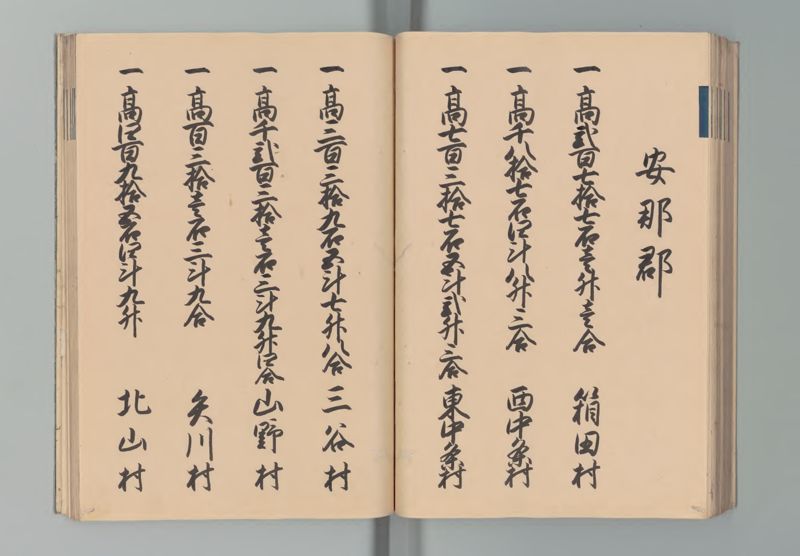 安那郡
一高弐百七拾七石壱升壱合 箱田村
一高千八拾七石四斗八升三合 西中条村
一高七百三拾七石五斗弐升三合 東中条村
一高三百三拾九石五斗七升八合 三谷村
一高千弐百三拾壱石三斗九升四合 山野村
一高百三拾壱石三斗九合 矢川村
一高四百九拾五石四斗九升 北山村